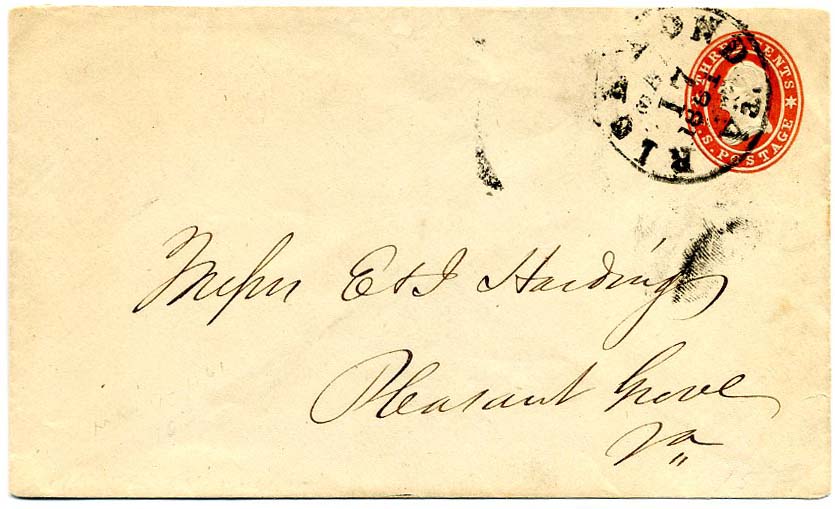 RICHMOND Va.
17
1861
THREE CENTS
U.S. POSTAGE
Messrs E & J Hardings
Pleasant Grove
Va